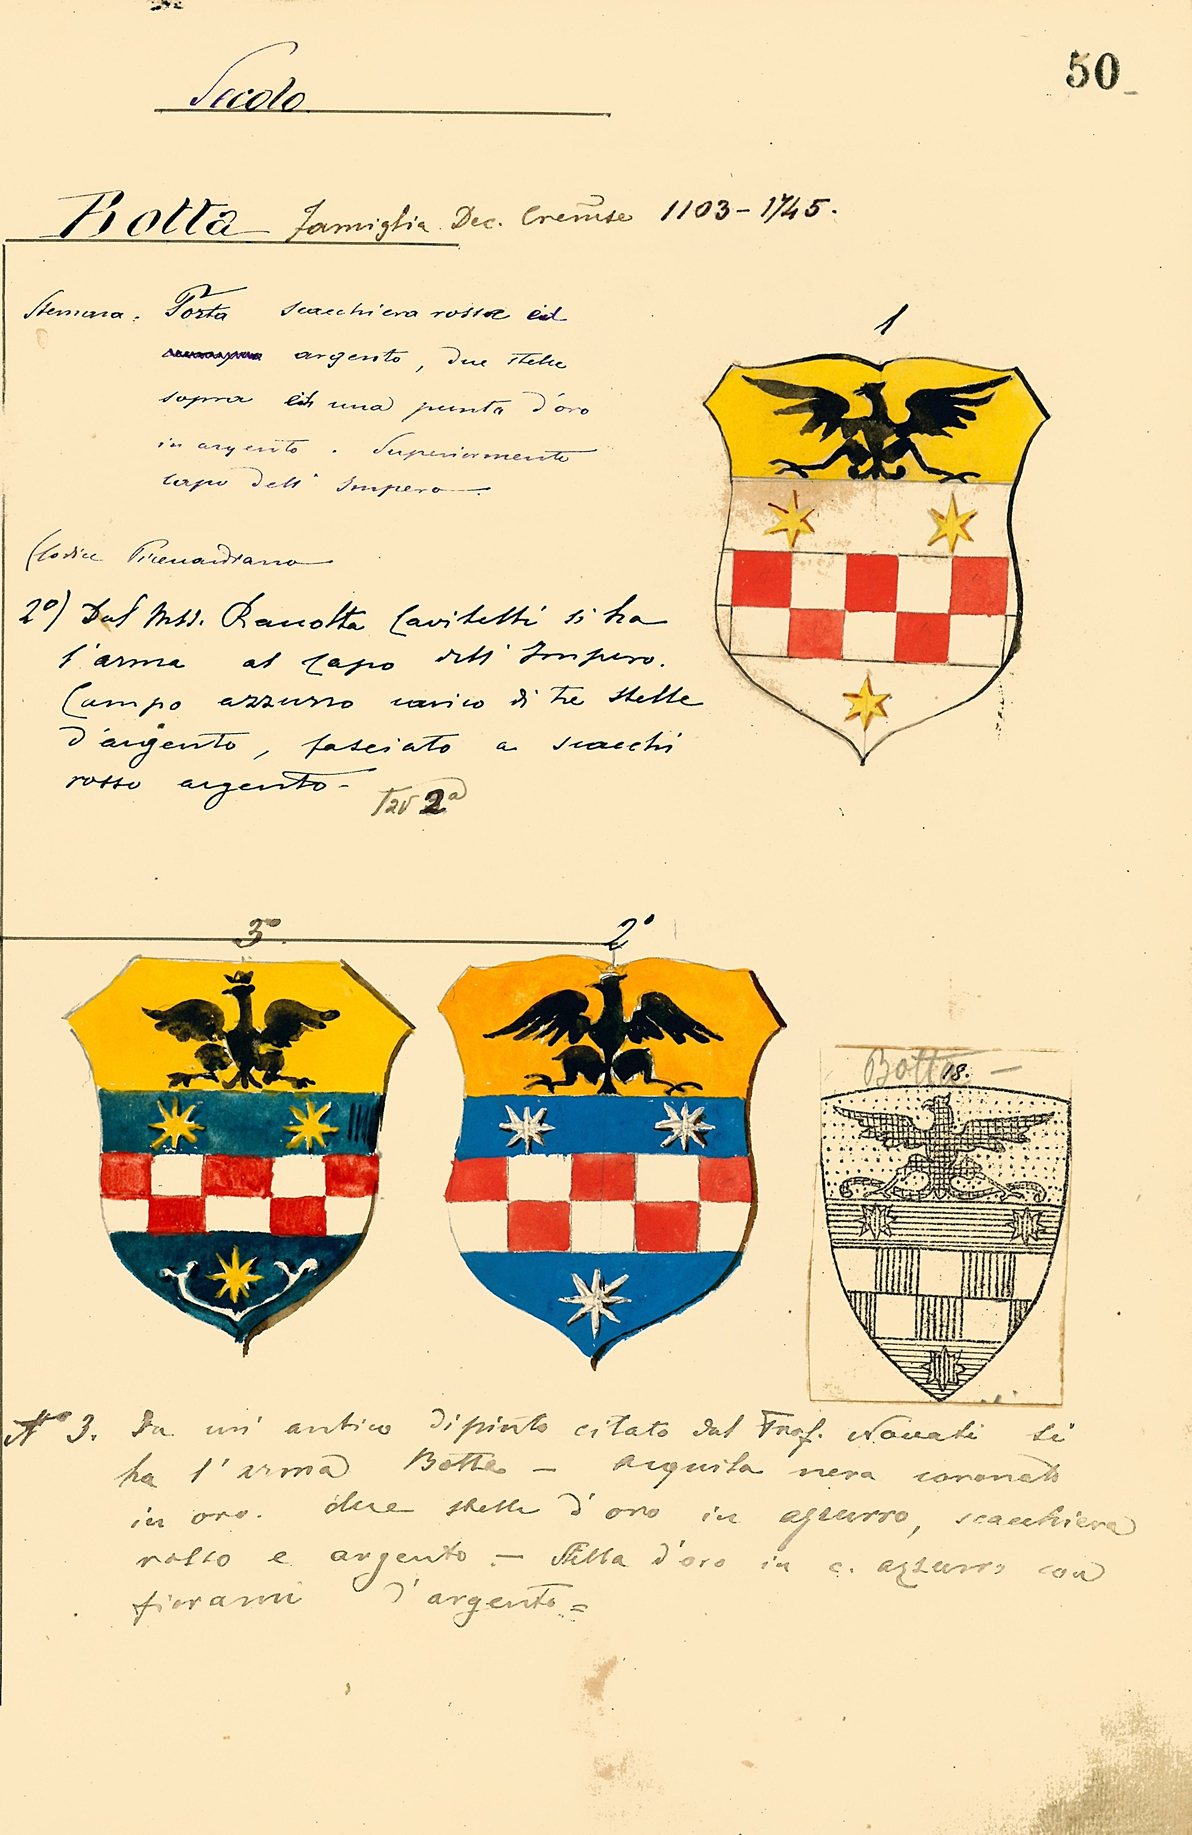 50
Secolo
Botta famiglia Dec. Cremse 1103-1745.
Stemma. Porta scacchiera rossa ed
argento, due stelle
sopra ed una punta d'oro
in argento. Superiormente
capo dell' Impero
Codice Picenardiano
2º) Dal Mss. Raccolta Cavitelli si ha
l'arma al capo dell' Impero.
Campo azzurro carico di tre stelle
d'argento, fasciato a scacchi
rosso argento-
Tav 2ª
1
3º.
2º
Botta -
18.
Nº 3. Da un' antico dipinto citato dal Prof. Novati si
ha l'arma Botta - aquila nera coronata
in oro. due stelle d'oro in azzurro, scacchiera
rosso e argento. - Stella d'oro in c. azzurro con
fiorami d'argento=